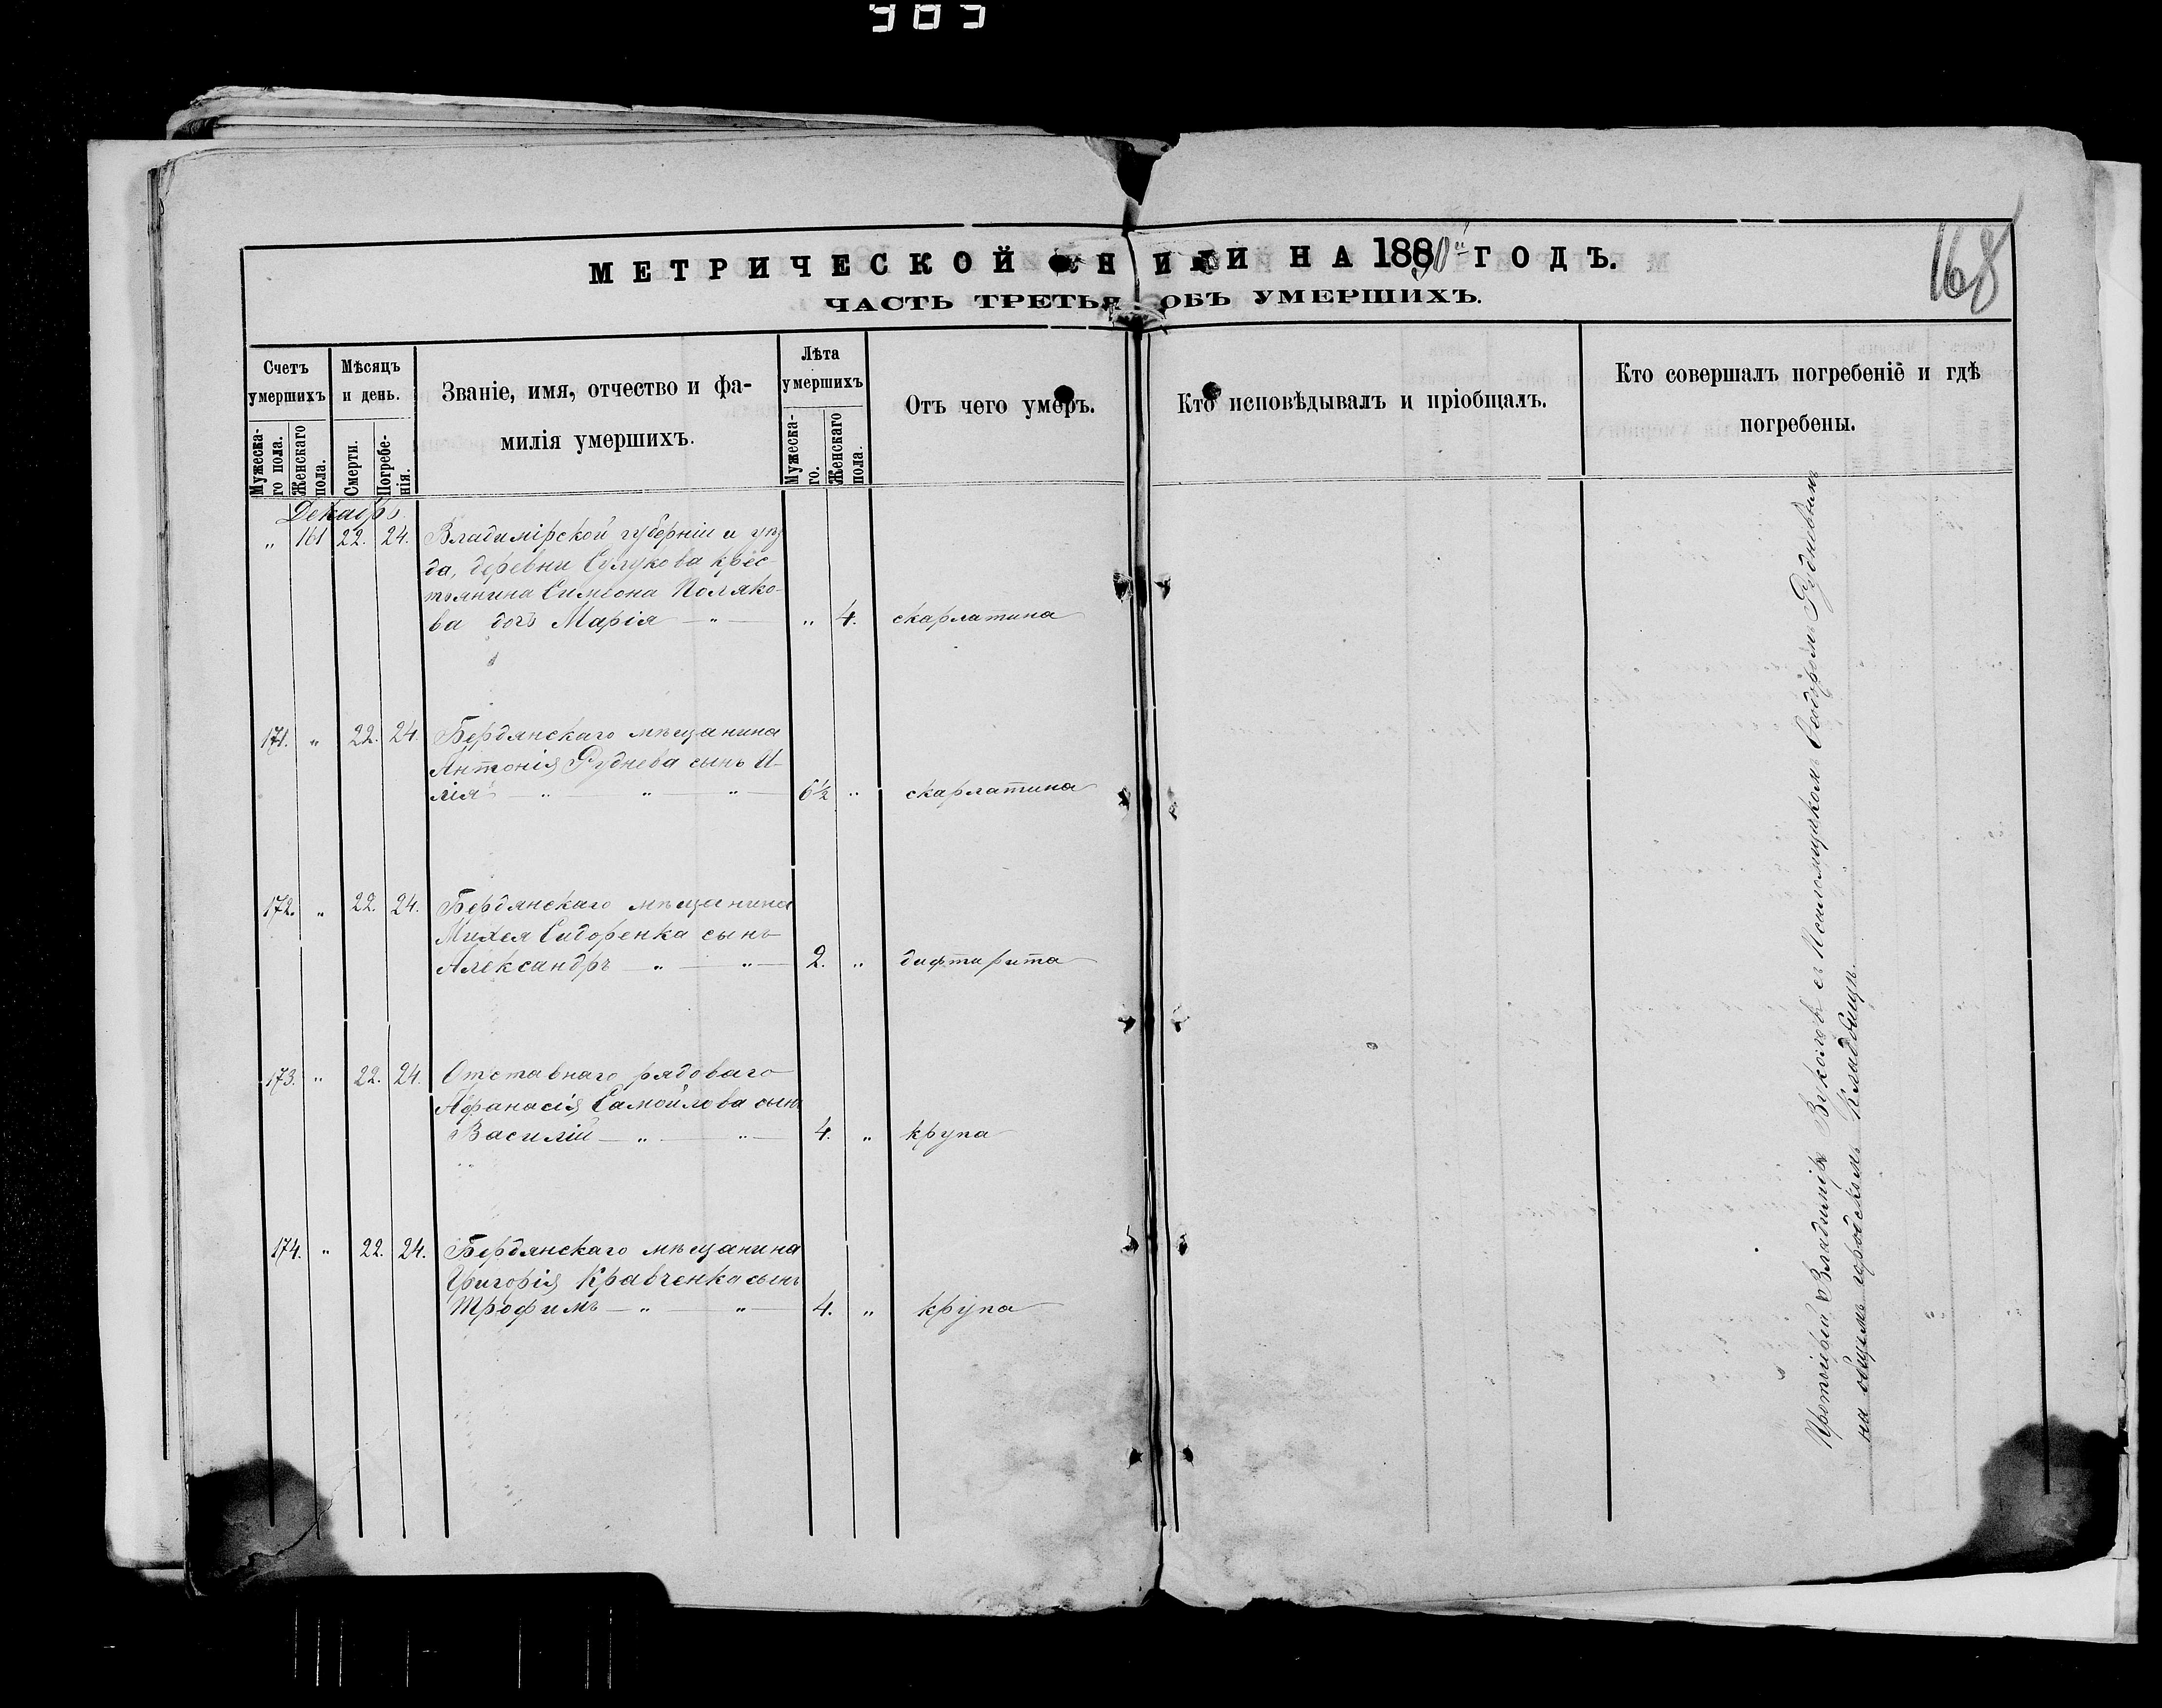 989
168
МЕТРИЧЕСКОЙ КНИГИ НА 1890й ГОДЪ.
ЧАСТЬ ТРЕТЬЯ ОБЪ УМЕРШИХЪ.
Счетъ умершихъ
Мужеска-
го пола.
Женскаго
пола.
Мѣсяцъ
и день.
Смерти.
Погребе-
нія.
Званіе, имя, отчество и фа-
милія умершихъ.
Лѣта
умершихъ
Мужеска-
го.
Женскаго
пола.
Отъ чего умеръ.
Кто исповѣдывалъ и пріобщалъ.
Кто совершалъ погребеніе и гдѣ
погребены.
Декабрь
" 161 22. 24. Владимірской губерніи и уѣз
да, деревни крес-
тьянина Симеона Поляко-
ва дочь Марія " " 4. скарлатина
171. " 22. 24. Бердянскаго мѣщанина
Антонія Руднева сынъ И-
лія " " " 6½ " скарлатина
172. " 22. 24. Бердянскаго мѣщанина
Михея Сидоренка сынъ
Александръ " " 2. " дифтирита
173. " 22. 24. Отставнаго рядоваго
Афанасія Самойлова сынъ
Василій " " 4. " крупа
174. " 22. 24. Бердянскаго мѣщанина
Григорія Кравченка сынъ
Трофимъ " " 4. " крупа
Протоіерей Владиміръ съ Псаломщикомъ Рудневымъ
на общемъ городскомъ кладбищѣ.